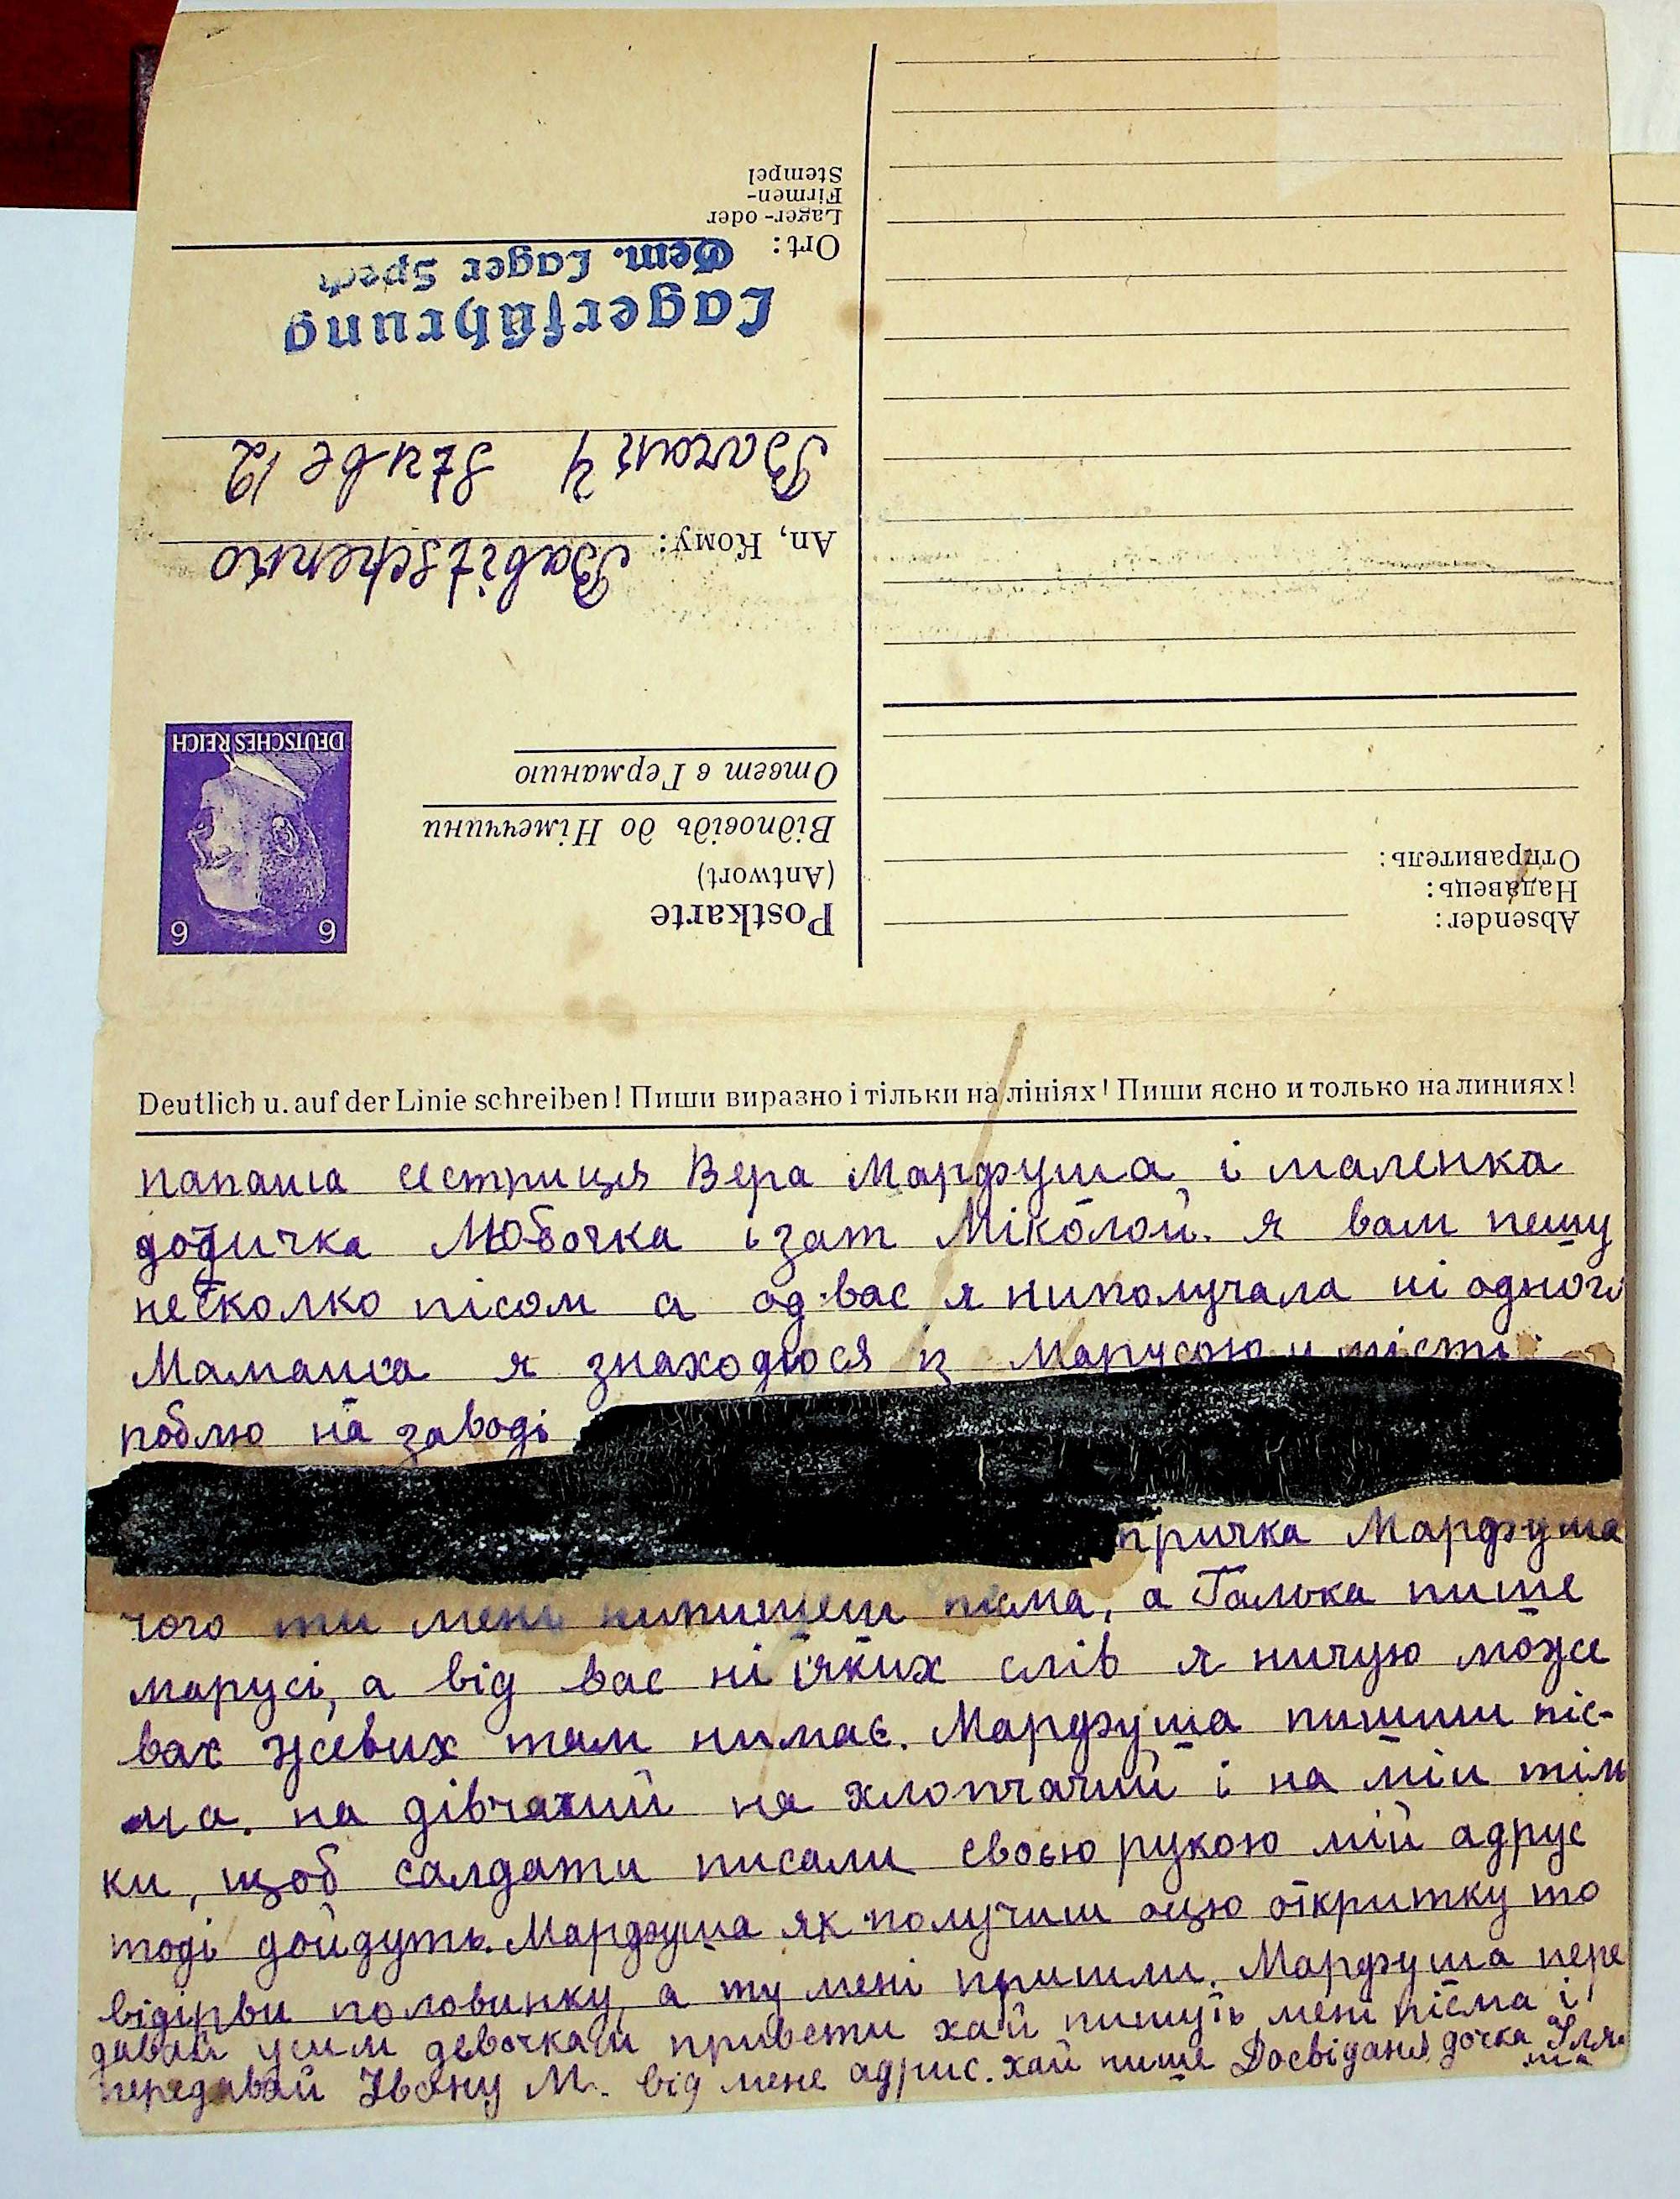 Lager- oder
Firmen-
Stempel
Ort:
Gem. Lager Spech
Lagerführung
Barak 4 Stube 12
An, Кому: Babitschenko
DEUTSCHES REICH
6 6
Ответ в Германию
Відповідь до Німеччини
(Antwort)
Postkarte
Отправитель:
Надавець:
Absender:
Deutlich u. auf der Linie schreiben! Пиши виразно і тільки на лініях! Пиши ясно и только на линиях!
папаша сестриця Вера Марфуша і маленка
додичка Любочка і зат Міколой. я вам пешу
несколко пісом а од вас я ниполучала ні одного
Мамаша я знаходюся із Марусою у місті
роблю на заводі
тричка Марфуша
чого ти мені нипишеш písма, а Галька пише
марусі, а від вас ні іяких слів я ничую може
вас ужевих там нимає. Марфуша пишиш піс-
ма. на дівчачий на хлопчачий і на мій тіль
ки, щоб салдати писали своєю рукою мій адрус
тоді дойдуть. Марфуша як получиш оцю откритку то
відірви половинку, а ту мені пришли. Марфуша пере
давай усим девочкам привети хай пишуть мені písма і
передавай Івану М. від мене адрис. хай пише Досвіданя дочка